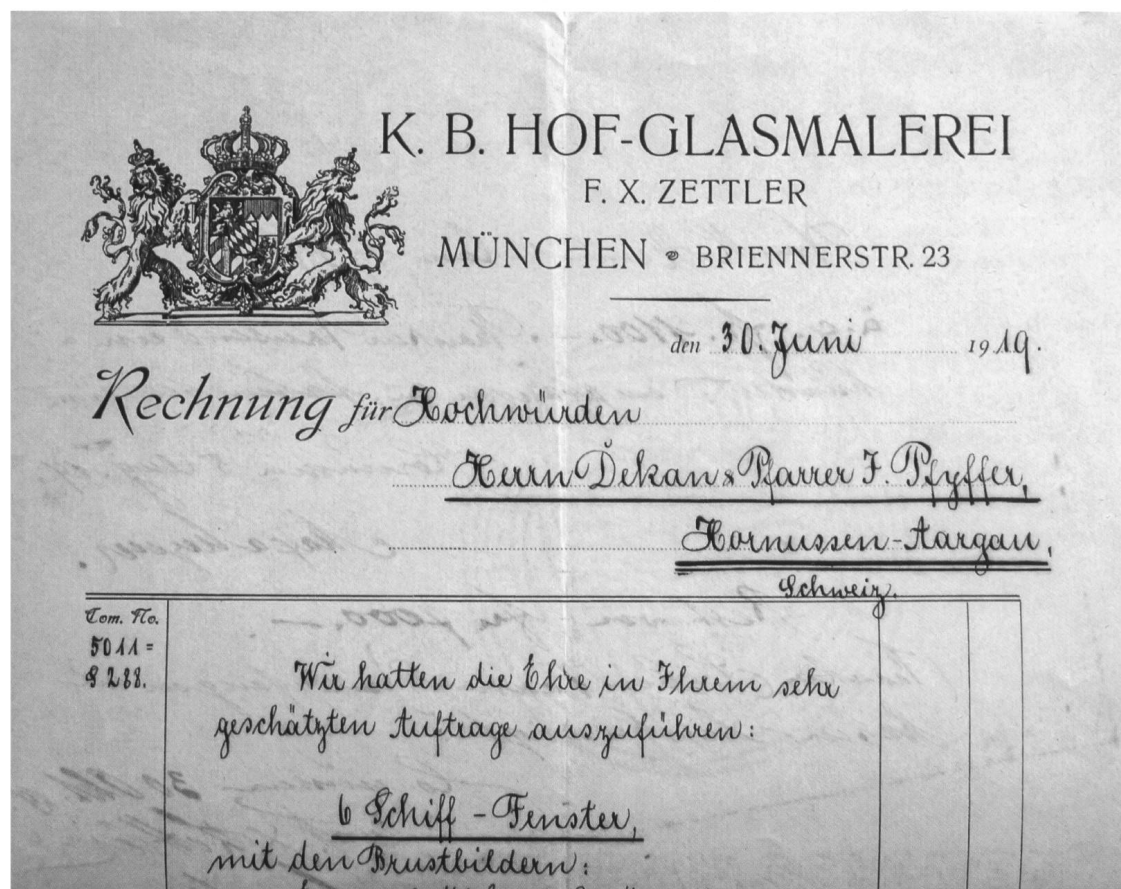 K. B. HOF-GLASMALEREI
F. X. ZETTLER
MÜNCHEN BRIENNERSTR. 23
den 30. Juni 1919.
Rechnung für Hochwürden
Herrn Dekan & Pfarrer J. Pfyffer,
Hornussen-Aargau,
Schweiz.
Com. No.
5011 =
§ 288.
Wir hatten die Ehre in Ihrem sehr
geschätzten Auftrage auszuführen:
6 Schiff - Fenster,
mit den Brustbildern: